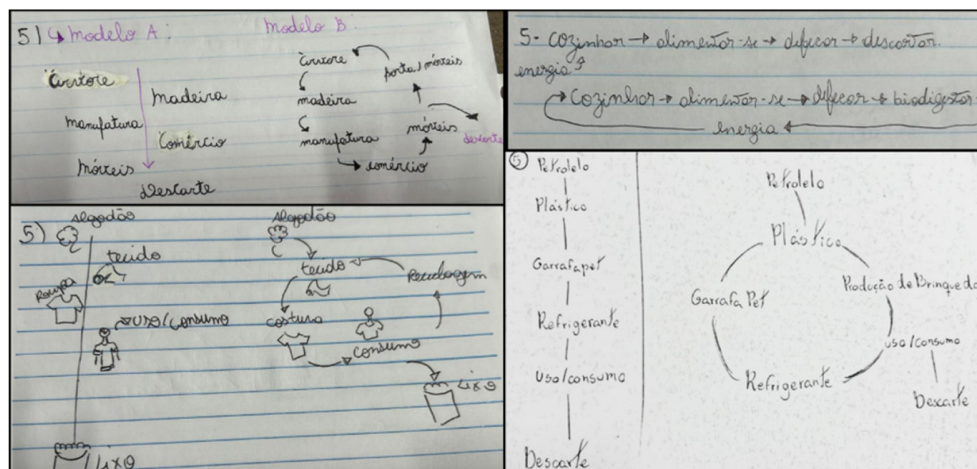 5) ↳ Modelo A:
Modelo B:
Árvore
Madeira
Manufatura
Comércio
Móveis
Descarte
Árvore
madeira
manufatura
comércio
móveis
porta/móveis
descarte
5- Cozinhar → alimentar-se → defecar → descartar.
energia
Cozinhar → alimentar-se → defecar → biodigestor
energia
5)
algodão
tecido
Roupa
uso/consumo
Lixo
algodão
tecido
Reciclagem
costura
consumo
Lixo
5
Petrolelo
Plástico
Garrafa pet
Refrigerante
Uso/consumo
Descarte
Petrolelo
Plástico
Garrafa Pet
Produção de Brinquedo
uso/consumo
Refrigerante
Descarte